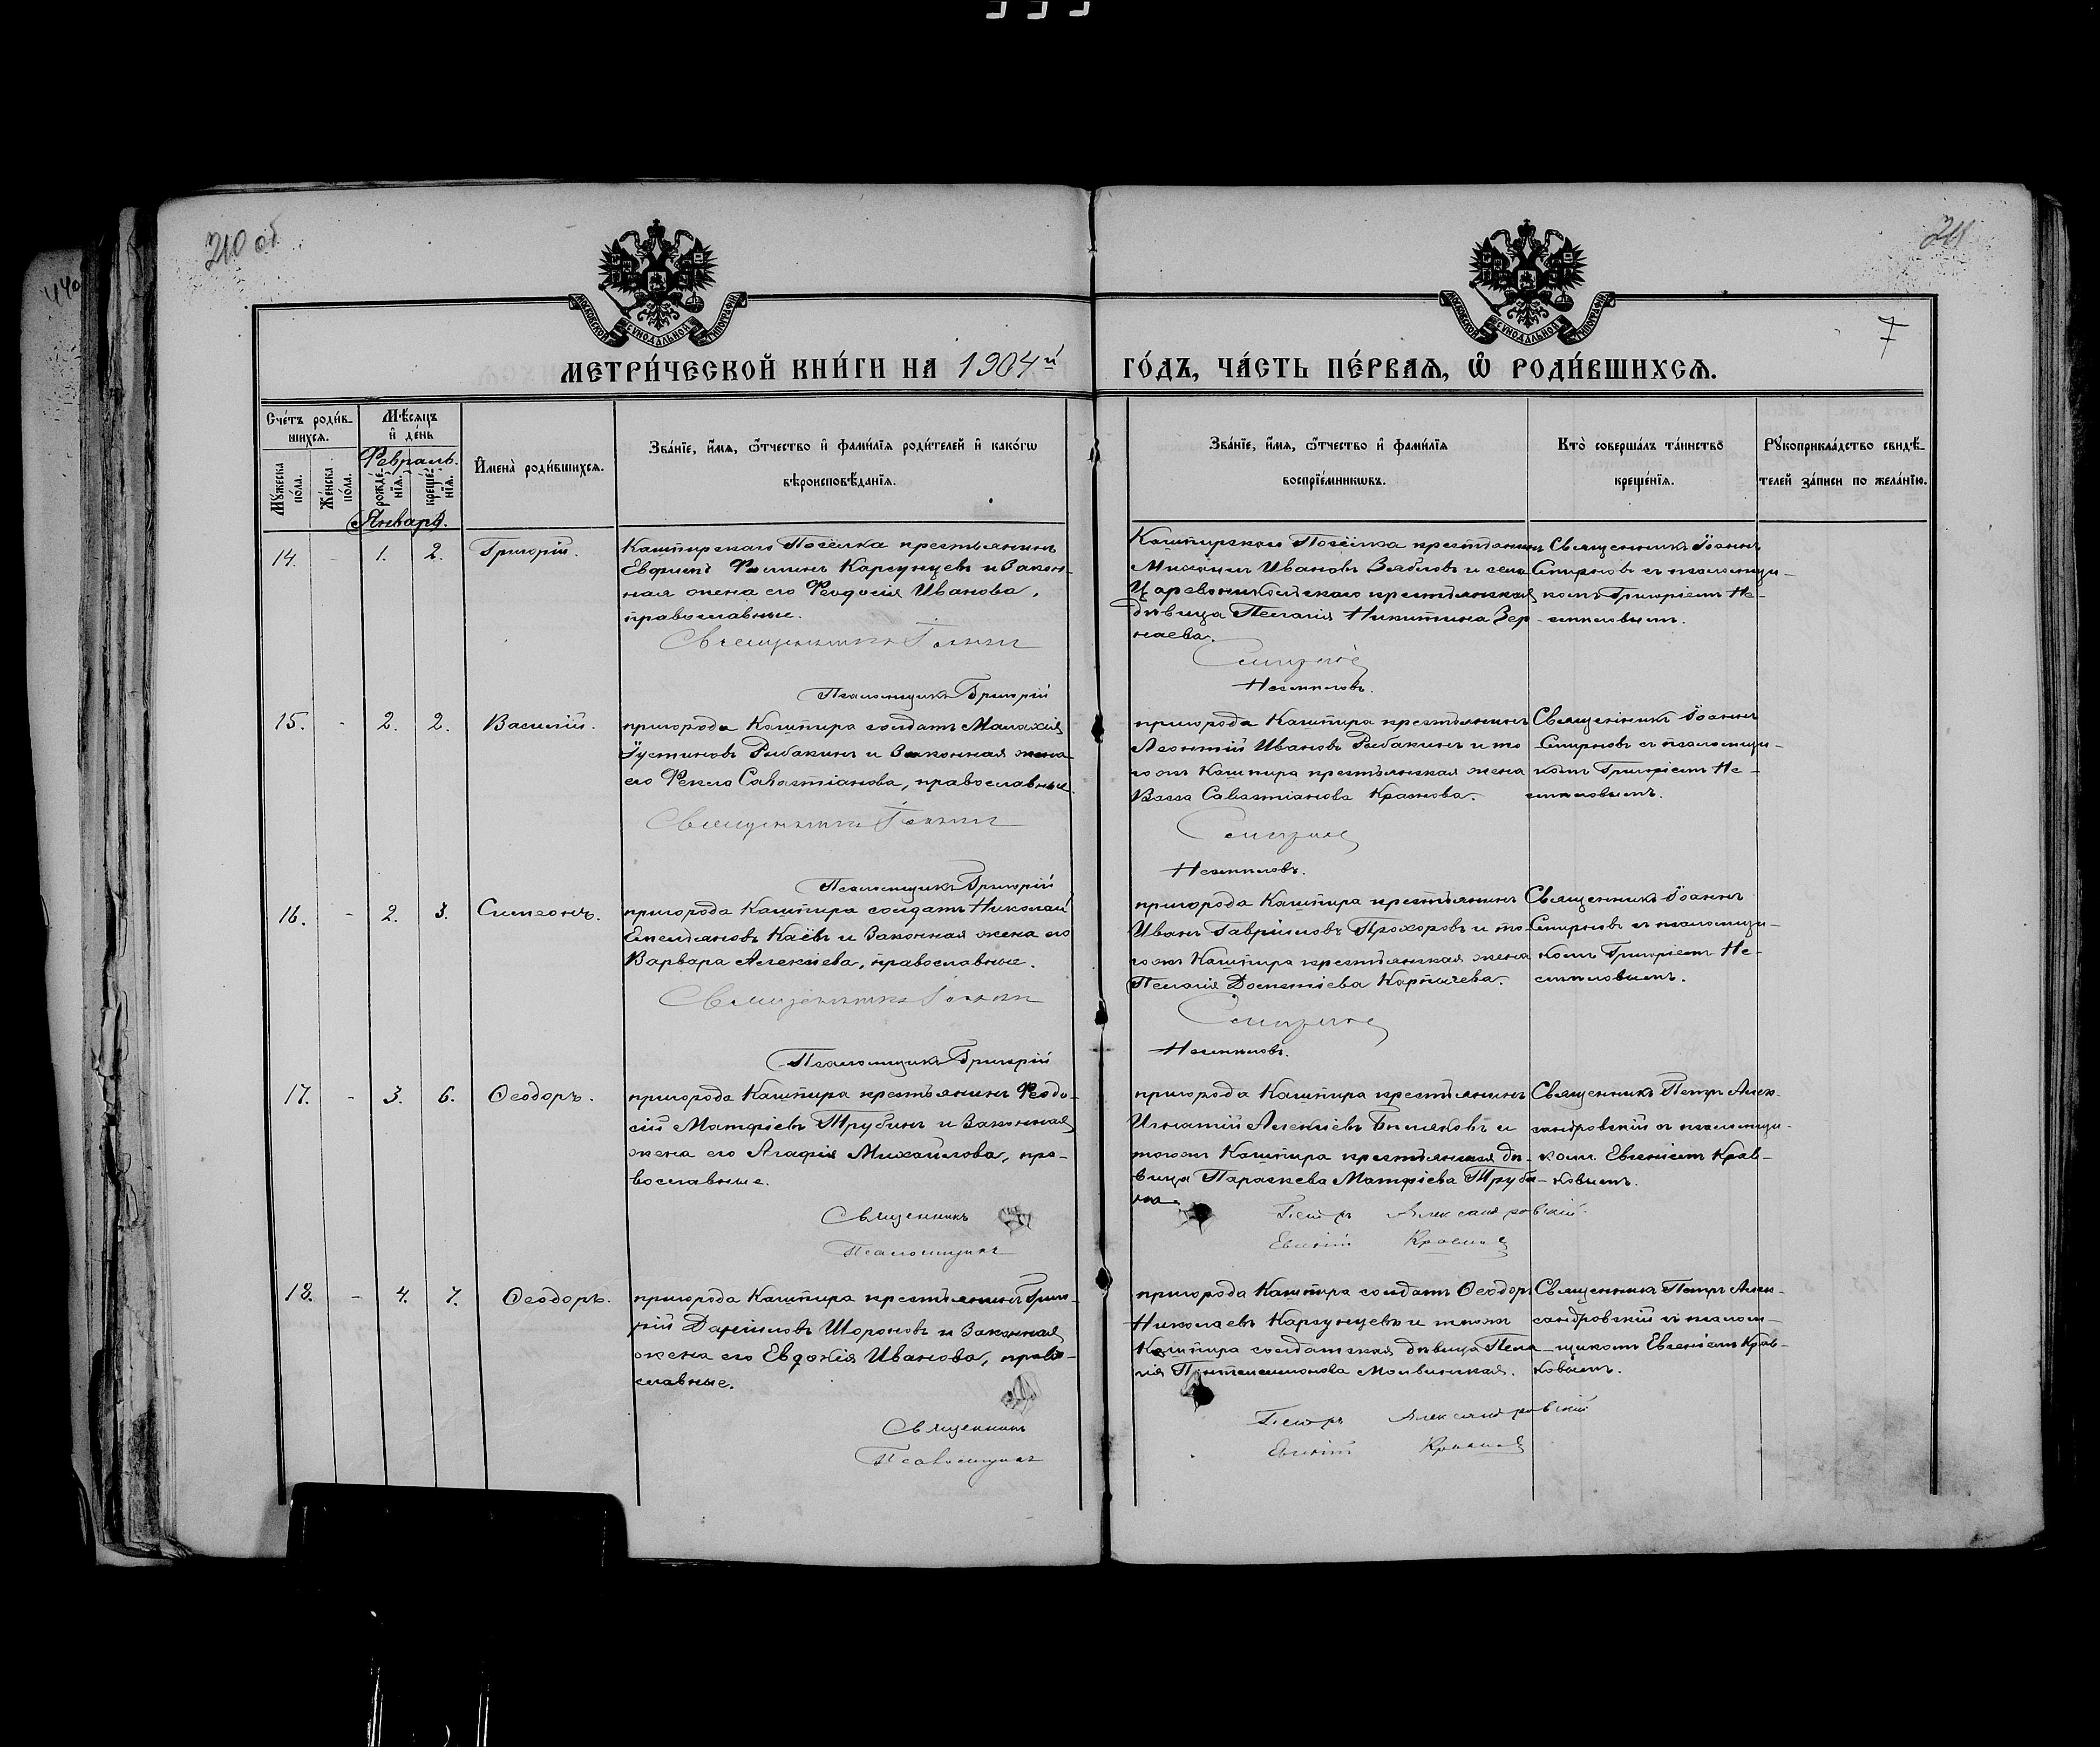 210 об
211
7
МОСКОВСКОЙ СѴНОДАЛЬНОЙ ТИПОГРАФІИ
МОСКОВСКОЙ СѴНОДАЛЬНОЙ ТИПОГРАФІИ
МЕТРИ́ЧЕСКОЙ КНИ́ГИ НА 1904й
ГО́ДЪ, ЧА́СТЬ ПЕ́РВАѦ, Ѡ҆ РОДИ́ВШИХСѦ.
Сче́тъ роди́в-
шихсѧ.
Мꙋ́жеска по́ла.
Же́нска по́ла.
Мѣ́сѧцъ
и҆ де́нь
Февраль.
рожде́-
нїѧ.
креще́-
нїѧ.
Январь.
И҆мена̀ роди́вшихсѧ.
Зва́нїе, и҆́мѧ, ѻ҆́тчество и҆ фами́лїѧ роди́телей и҆ како́гѡ
вѣроисповѣ́данїѧ.
Зва́нїе, и҆́мѧ, ѻ҆́тчество и҆ фами́лїѧ
воспрїе́мникѡвъ.
Кто̀ соверша́лъ та́инство
креще́нїѧ.
Рꙋкоприкла́дство свидѣ́-
телей за́писи по жела́нїю.
14. - 1. 2. Григорій.
Кашпирскаго Посёлка крестьянинъ
Евфимъ Фоминъ Карсунцевъ и закон-
ная жена его Феодосія Иванова,
православные.
Священникъ Іоаннъ
Псаломщикъ Григорій
Кашпирскаго Посёлка крестьянинъ
Михаилъ Ивановъ Зябловъ и села
крестьянская
дѣвица Пелагія Никитина Зер-
наева.
Смирновъ
Несмѣловъ.
Священникъ Іоаннъ
Смирновъ съ псаломщи-
комъ Григоріемъ Не-
смѣловымъ.
15. - 2. 2. Василій.
пригорода Кашпира солдатъ Малахія
Іустиновъ Рыбакинъ и законная жена
его Фекла Савастіанова, православные.
Священникъ Іоаннъ
Псаломщикъ Григорій
пригорода Кашпира крестьянинъ
Леонтій Ивановъ Рыбакинъ и то-
гожъ Кашпира крестьянская жена
Васса Савастіанова Краснова.
Смирновъ
Несмѣловъ.
Священникъ Іоаннъ
Смирновъ съ псаломщи-
комъ Григоріемъ Не-
смѣловымъ.
16. - 2. 3. Симеонъ.
пригорода Кашпира солдатъ Николай
Емельяновъ Каёвъ и законная жена его
Варвара Алексіева, православные.
Священникъ Іоаннъ
Псаломщикъ Григорій
пригорода Кашпира крестьянинъ
Иванъ Гавріиловъ Прохоровъ и то-
гожъ Кашпира крестьянская жена
Пелагія Досиѳеіева Карпачева.
Смирновъ
Несмѣловъ.
Священникъ Іоаннъ
Смирновъ съ псаломщи-
комъ Григоріемъ Не-
смѣловымъ.
17. - 3. 6. Ѳеодоръ.
пригорода Кашпира крестьянинъ Феодо-
сій Матфіевъ Трубинъ и законная
жена его Агафія Михайлова, пра-
вославные.
Священникъ
Псаломщикъ
пригорода Кашпира крестьянинъ
Игнатій Алексіевъ Бѣляковъ и
тогожъ Кашпира крестьянская дѣ-
вица Параскева Матфіева Труби-
на.
Петръ Александровскій.
Евгеній Кравковъ
Священникъ Петръ Алек-
сандровскій съ псаломщи-
комъ Евгеніемъ Крав-
ковымъ.
18. - 4. 7. Ѳеодоръ.
пригорода Кашпира крестьянинъ Григо-
рій Даніиловъ Шороновъ и законная
жена его Евдокія Иванова, право-
славные.
Священникъ
Псаломщикъ
пригорода Кашпира солдатъ Ѳеодоръ
Николаевъ Карсунцевъ и тогожъ
Кашпира солдатская дѣвица Пела-
гія Пантелеимонова
Петръ Александровскій
Евгеній Кравковъ
Священникъ Петръ Алек-
сандровскій съ псалом-
щикомъ Евгеніемъ Крав-
ковымъ.